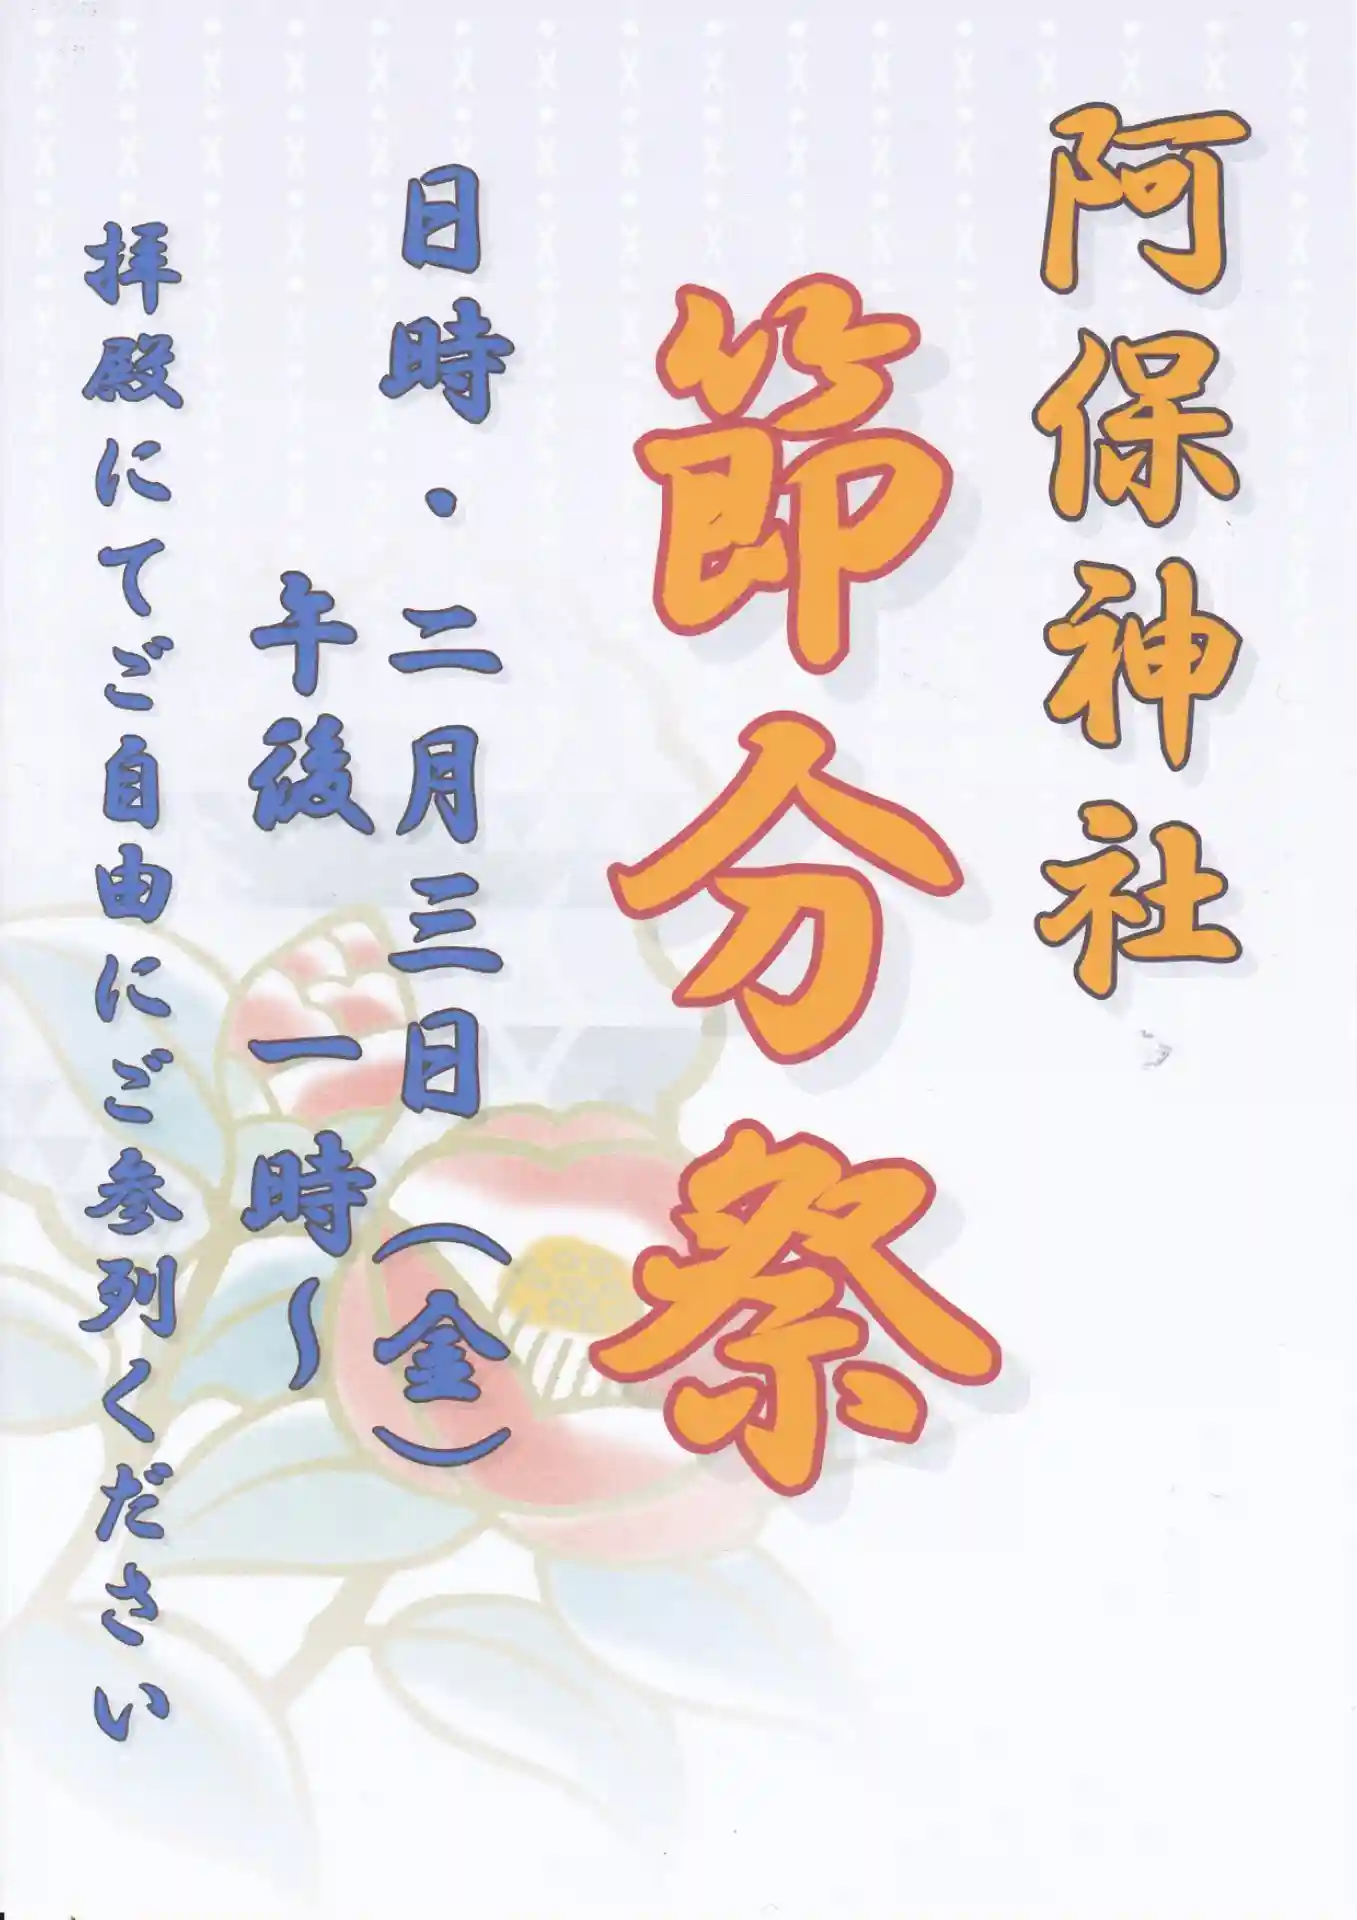 阿保神社
節分祭
日時・二月三日（金）
午後一時～
拝殿にてご自由にご参列ください